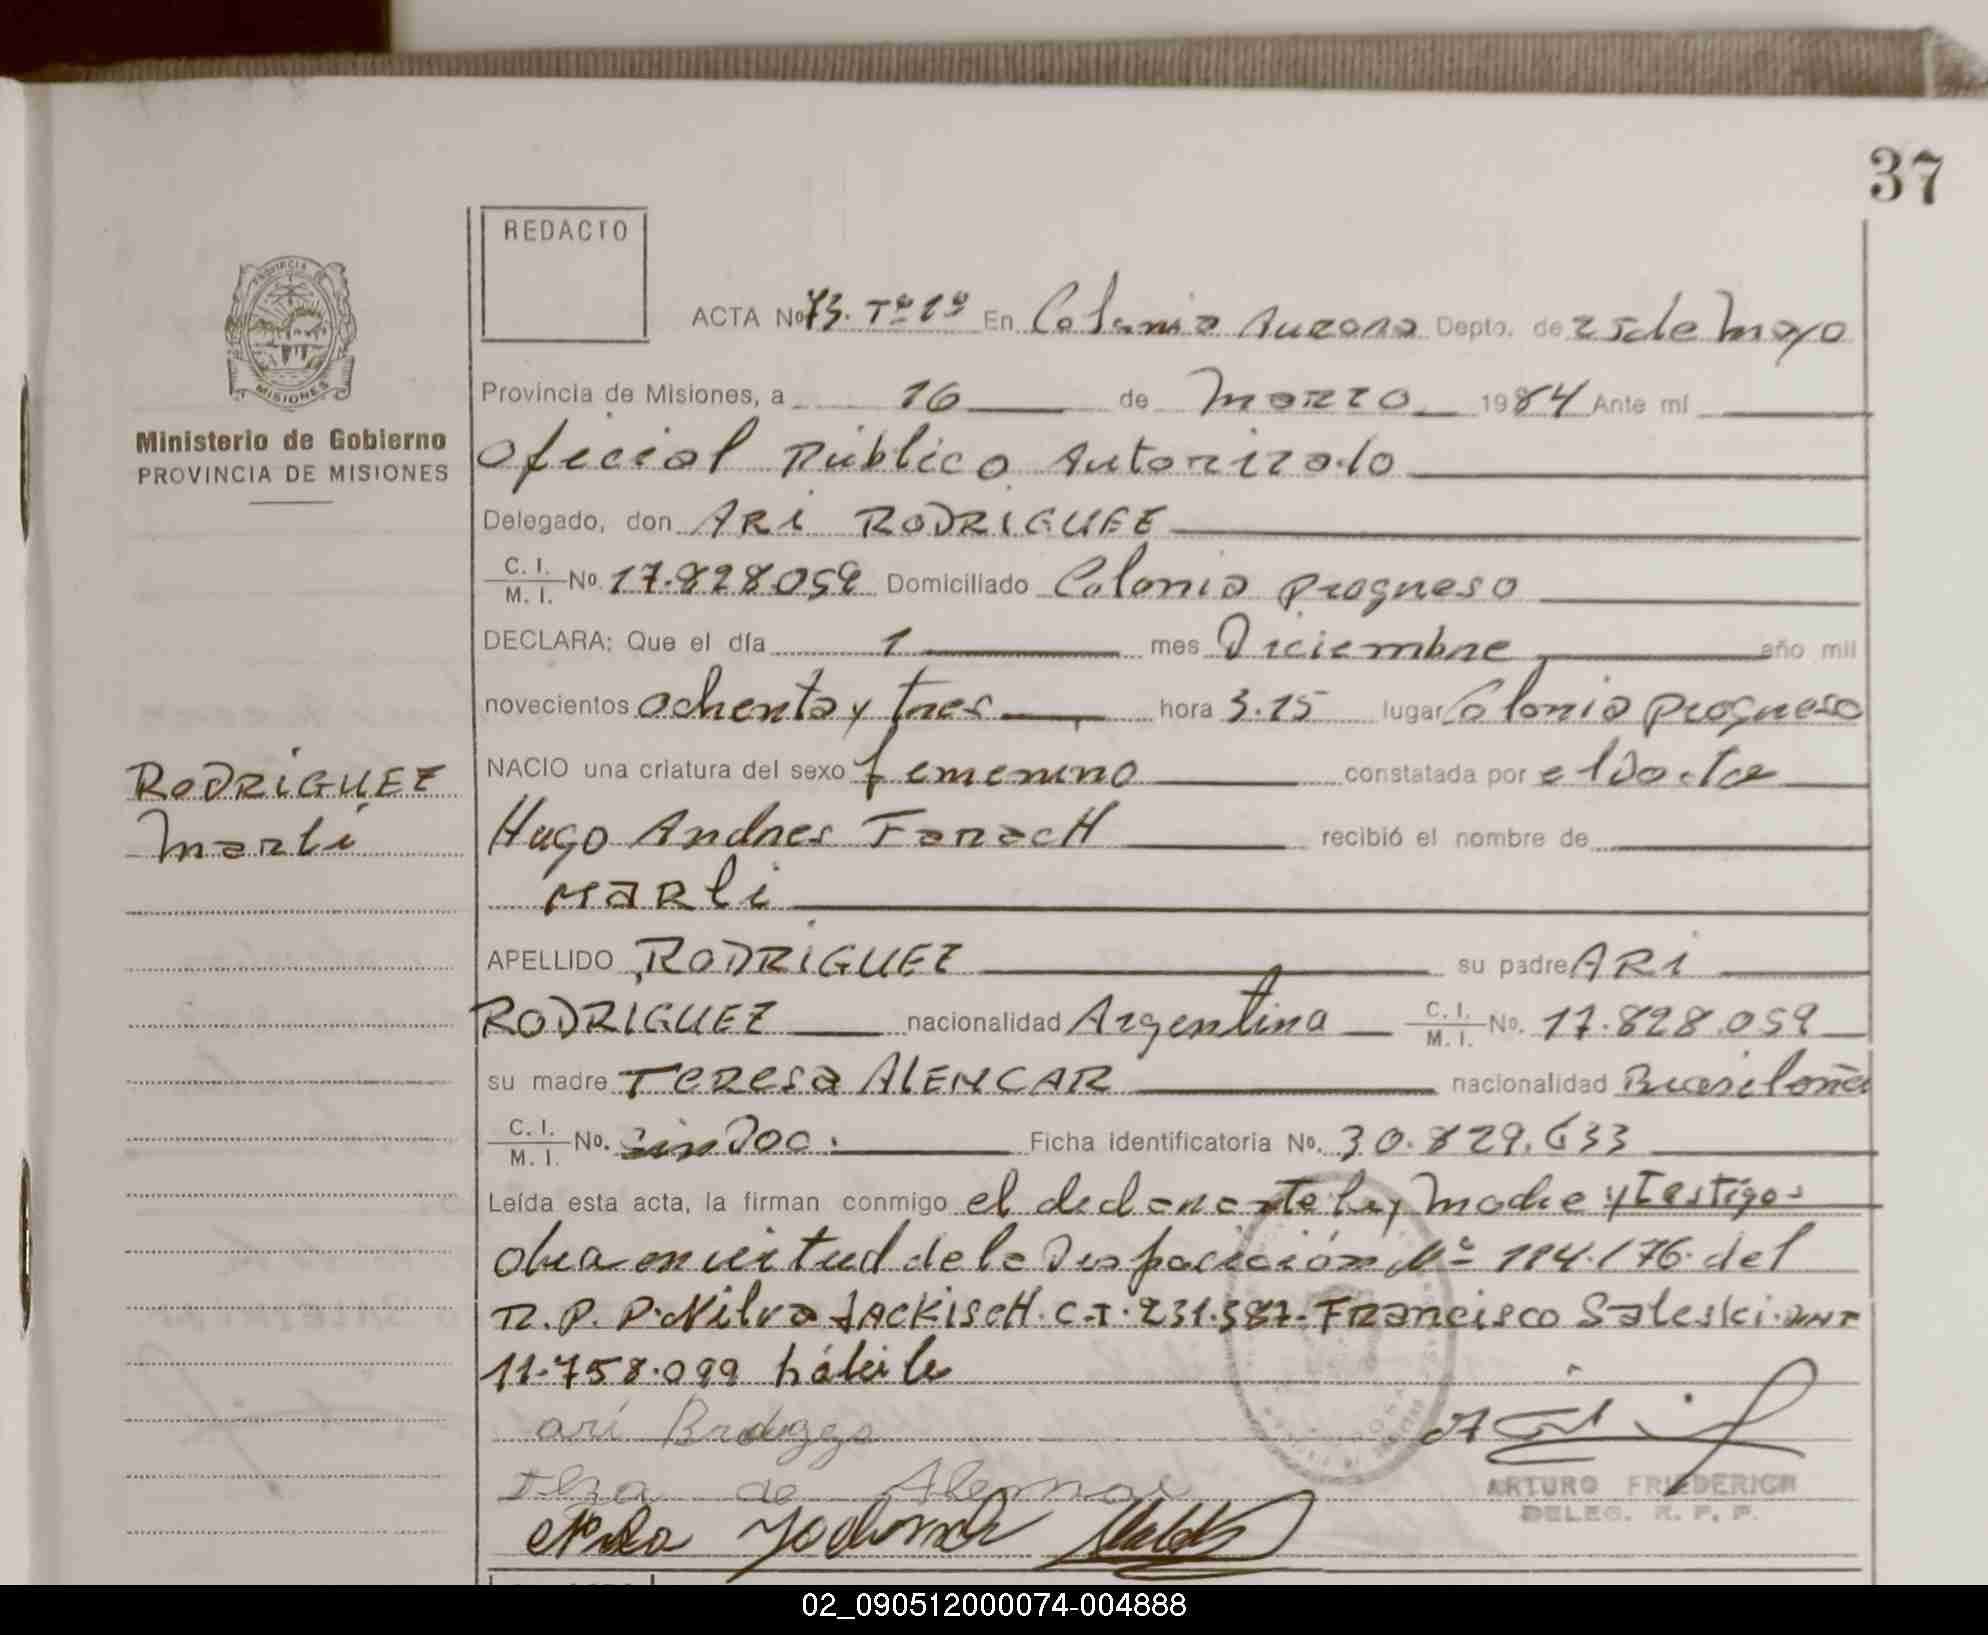 37
REDACTO
ACTA No 73. Tº 1º En Colonia Aurora Depto. de 25 de Mayo
Provincia de Misiones, a 16 de Marzo 1984 Ante mí
Ministerio de Gobierno
PROVINCIA DE MISIONES
Oficial Público Autorizado
Delegado, don ARi RODRiGUEZ
C. I.
M. I. No. 17.828.059 Domiciliado Colonia Progreso
DECLARA: Que el día 1 mes Diciembre año mil
novecientos ochenta y tres hora 3.15 lugar Colonia Progreso
RODRiGUEZ
Marli
NACIO una criatura del sexo femenino constatada por el Doctor
Hugo Andres FaracH recibió el nombre de
MaRli
APELLIDO RODRiGUEZ su padre ARi
RODRIGUEZ nacionalidad Argentina C. I.
M. I. No. 17.828.059
su madre TeResa AlENCAR nacionalidad Brasileña
C. I.
M. I. No. Sin Doc. Ficha identificatoria No. 30.829.633
Leída esta acta, la firman conmigo el declarante la madre y testigos
obra en virtud de la Disposición Nº 194/76 del
R.P.P. Nilva JACKISCH. C.I. 231.387. FRancisco Saleski. DNI
11.758.099 hábile
ari
de
ARTURO FRIEDERICH
DELEG. R. P. P.
PROVINCIA DE
MISIONES
02_090512000074-004888